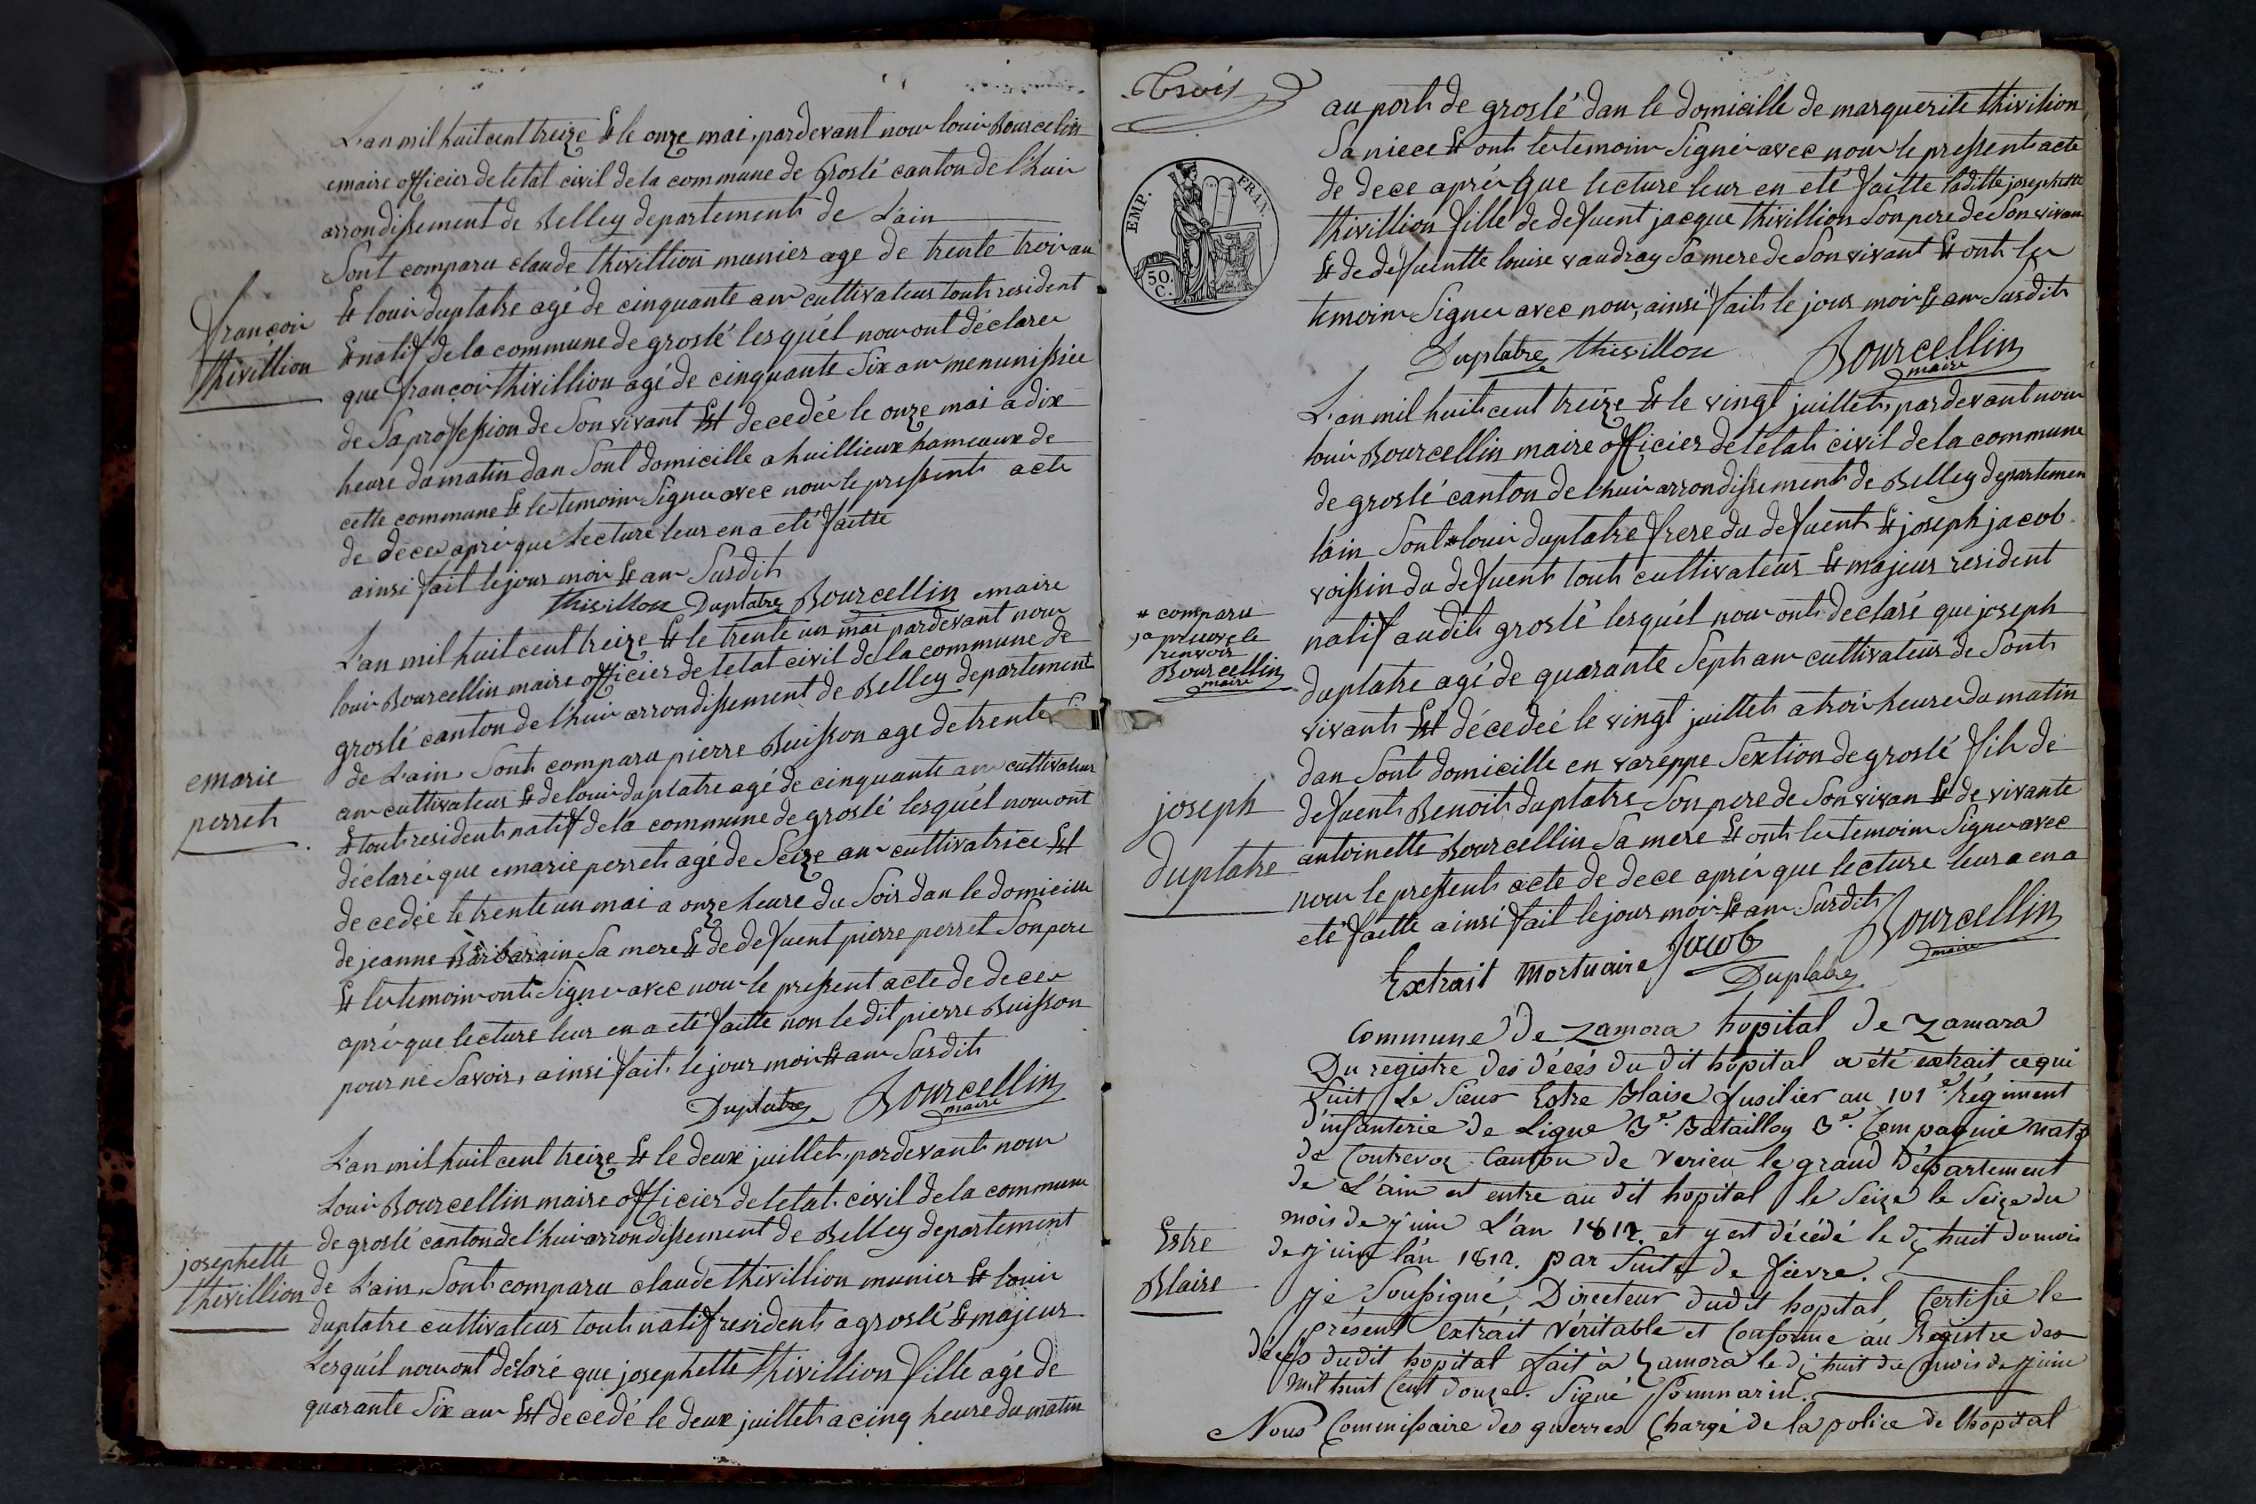 L'an mil huit cent treize Et le onze mai, pardevant nous louis Bourcelin
maire officier de letat civil de la commune de Groslé canton de l'huis
arrondissement de Belley departement de Lain
Sont comparu claude thivillion munier age de trente trois an
françois
thivillion
Et louis duplatre agé de cinquante ans cultivateur touts resident
Et natif de la commune de groslé lesquél nous ont déclarer
que françois thivillion agé de cinquante Six ans menunissier
de Sa profession de Son vivant Est decedée le onze mai a dix
heure du matin dan Sont domicille a huillieux hameaux de
cette commune Et le temoins Signer avec nous le pressent acte
de deces aprés que lecture leur en a eté faitte
ainsi fait le jour mois Et ans Susdit
thivillon Duplatre Bourcellin maire
L'an mil huit cent treize Et le trente un mai pardevant nous
louis Bourcellin maire officier de letat civil de la commune de
groslé canton de l'huis arrondissement de Belley departement
de L'ain Sont comparu pierre Buisson age de trente
marie
perret
ans cultivateur Et de louis duplatre agé de cinquante ans cultivateur
Et tout resident natif de la commune de groslé lesquél nous ont
déclaré que marie perret agé de Seize ans cultivatrice Est
decedée le trente un mai a onze heure du Soir dan le domicille
de jeanne Barbarain Sa mere Et de defuent pierre perret Son pere
Et les temoins ont Signer avec nous le pressent acte de deces
aprés que lecture leur en a eté faitte non le dit pierre Buisson
pour ne Savoir, ainsi fait le jour mois Et ans Susdit
Duplatre Bourcellin
maire
L'an mil huit cent treize Et le deux juillet, pardevant nous
Louis Bourcellin maire officier de letat civil de la commune
de groslé canton de l'huis arrondissement de Belley departement
josephette
thivillion
de L'ain, Sont comparu claude thivillion munier Et louis
duplatre cultivateur touts natif resident a groslé Et majeur
Lesquél nous ont déclaré que josephette thivillion fille agé de
quarante Six ans Est decedé le deux juillet a cinq heure du matin
Trois
EMP. FRAN.
50. C.
au port de groslé dan le domicille de marguerite thivilion
Sa niece Et ont les temoins Signer avec nous le pressent acte
de dece aprés que lecture leur en eté faitte laditte josephette
thivillion fille de defuent jacque thivillion Son pere de Son vivan
Et de defuentte louise vaudray Sa mere de Son vivant Et ont les
temoins Signer avec nous, ainsi fait le jour mois Et ans Susdit
Duplatre thivillon Bourcellin
maire
L'an mil huit cent treize Et le vingt juillet, pardevant nous
louis Bourcellin maire officier de létat civil de la commune
de groslé canton de lhuis arrondissement de Belley departemen
lain Sont * louis duplatre frere du defuent Et joseph jacob
voissin du defuent touts cultivateur Et majeur resident
* comparu
japreuve le
renvois
Bourcellin
maire
natif audit groslé lesquél nous ont declaré que joseph
duplatre agé de quarante Sept ans cultivateur de Sont
vivant Est décedée le vingt juillet a trois heure du matin
dan Sont domicille en vareppe Sextion de groslé fils de
joseph
duplatre
defuent Benoit duplatre Son pere de Son vivan Et de vivante
antoinette Bourcellin Sa mere Et ont les temoins Signer avec
nous le pressent acte de dece aprés que lecture leur a en a
eté faitte ainsi fait le jour mois Et ans Susdit
Jacob Duplatre Bourcellin
maire
Extrait Mortuaire
Commune de Zamora hopital de Zamara
Du registre des décés du dit hopital a été extrait ce qui
Suit, Le Sieur Estre Blaise fusilier au 101e Régiment
d'infanterie de Ligne 3e. Bataillon 3e. Compagnie natif
de Contrevoz Canton de Verieu le grand Département
de L'ain est entre au dit hopital le Seize le Seize du
mois de juin L'an 1812. et y est décédé le dix huit du mois
Estre
Blaise
de juin l'an 1812. par Suite de fievre.
Je Soussigné Directeur dudit hopital Certifie le
présent Extrait Véritable et Conforme au Registre des
décés dudit hopital fait à Zamora le dix huit du mois de juin
Mil huit Cent douze. Signé Sommarin.
Nous Commissaire des guerres Chargé de la police de l'hopital